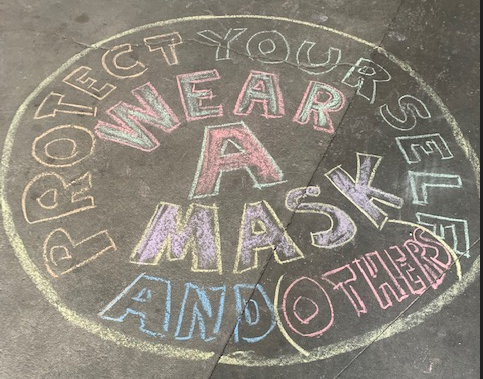 PROTECT YOURSELF
WEAR
A
MASK
AND OTHERS